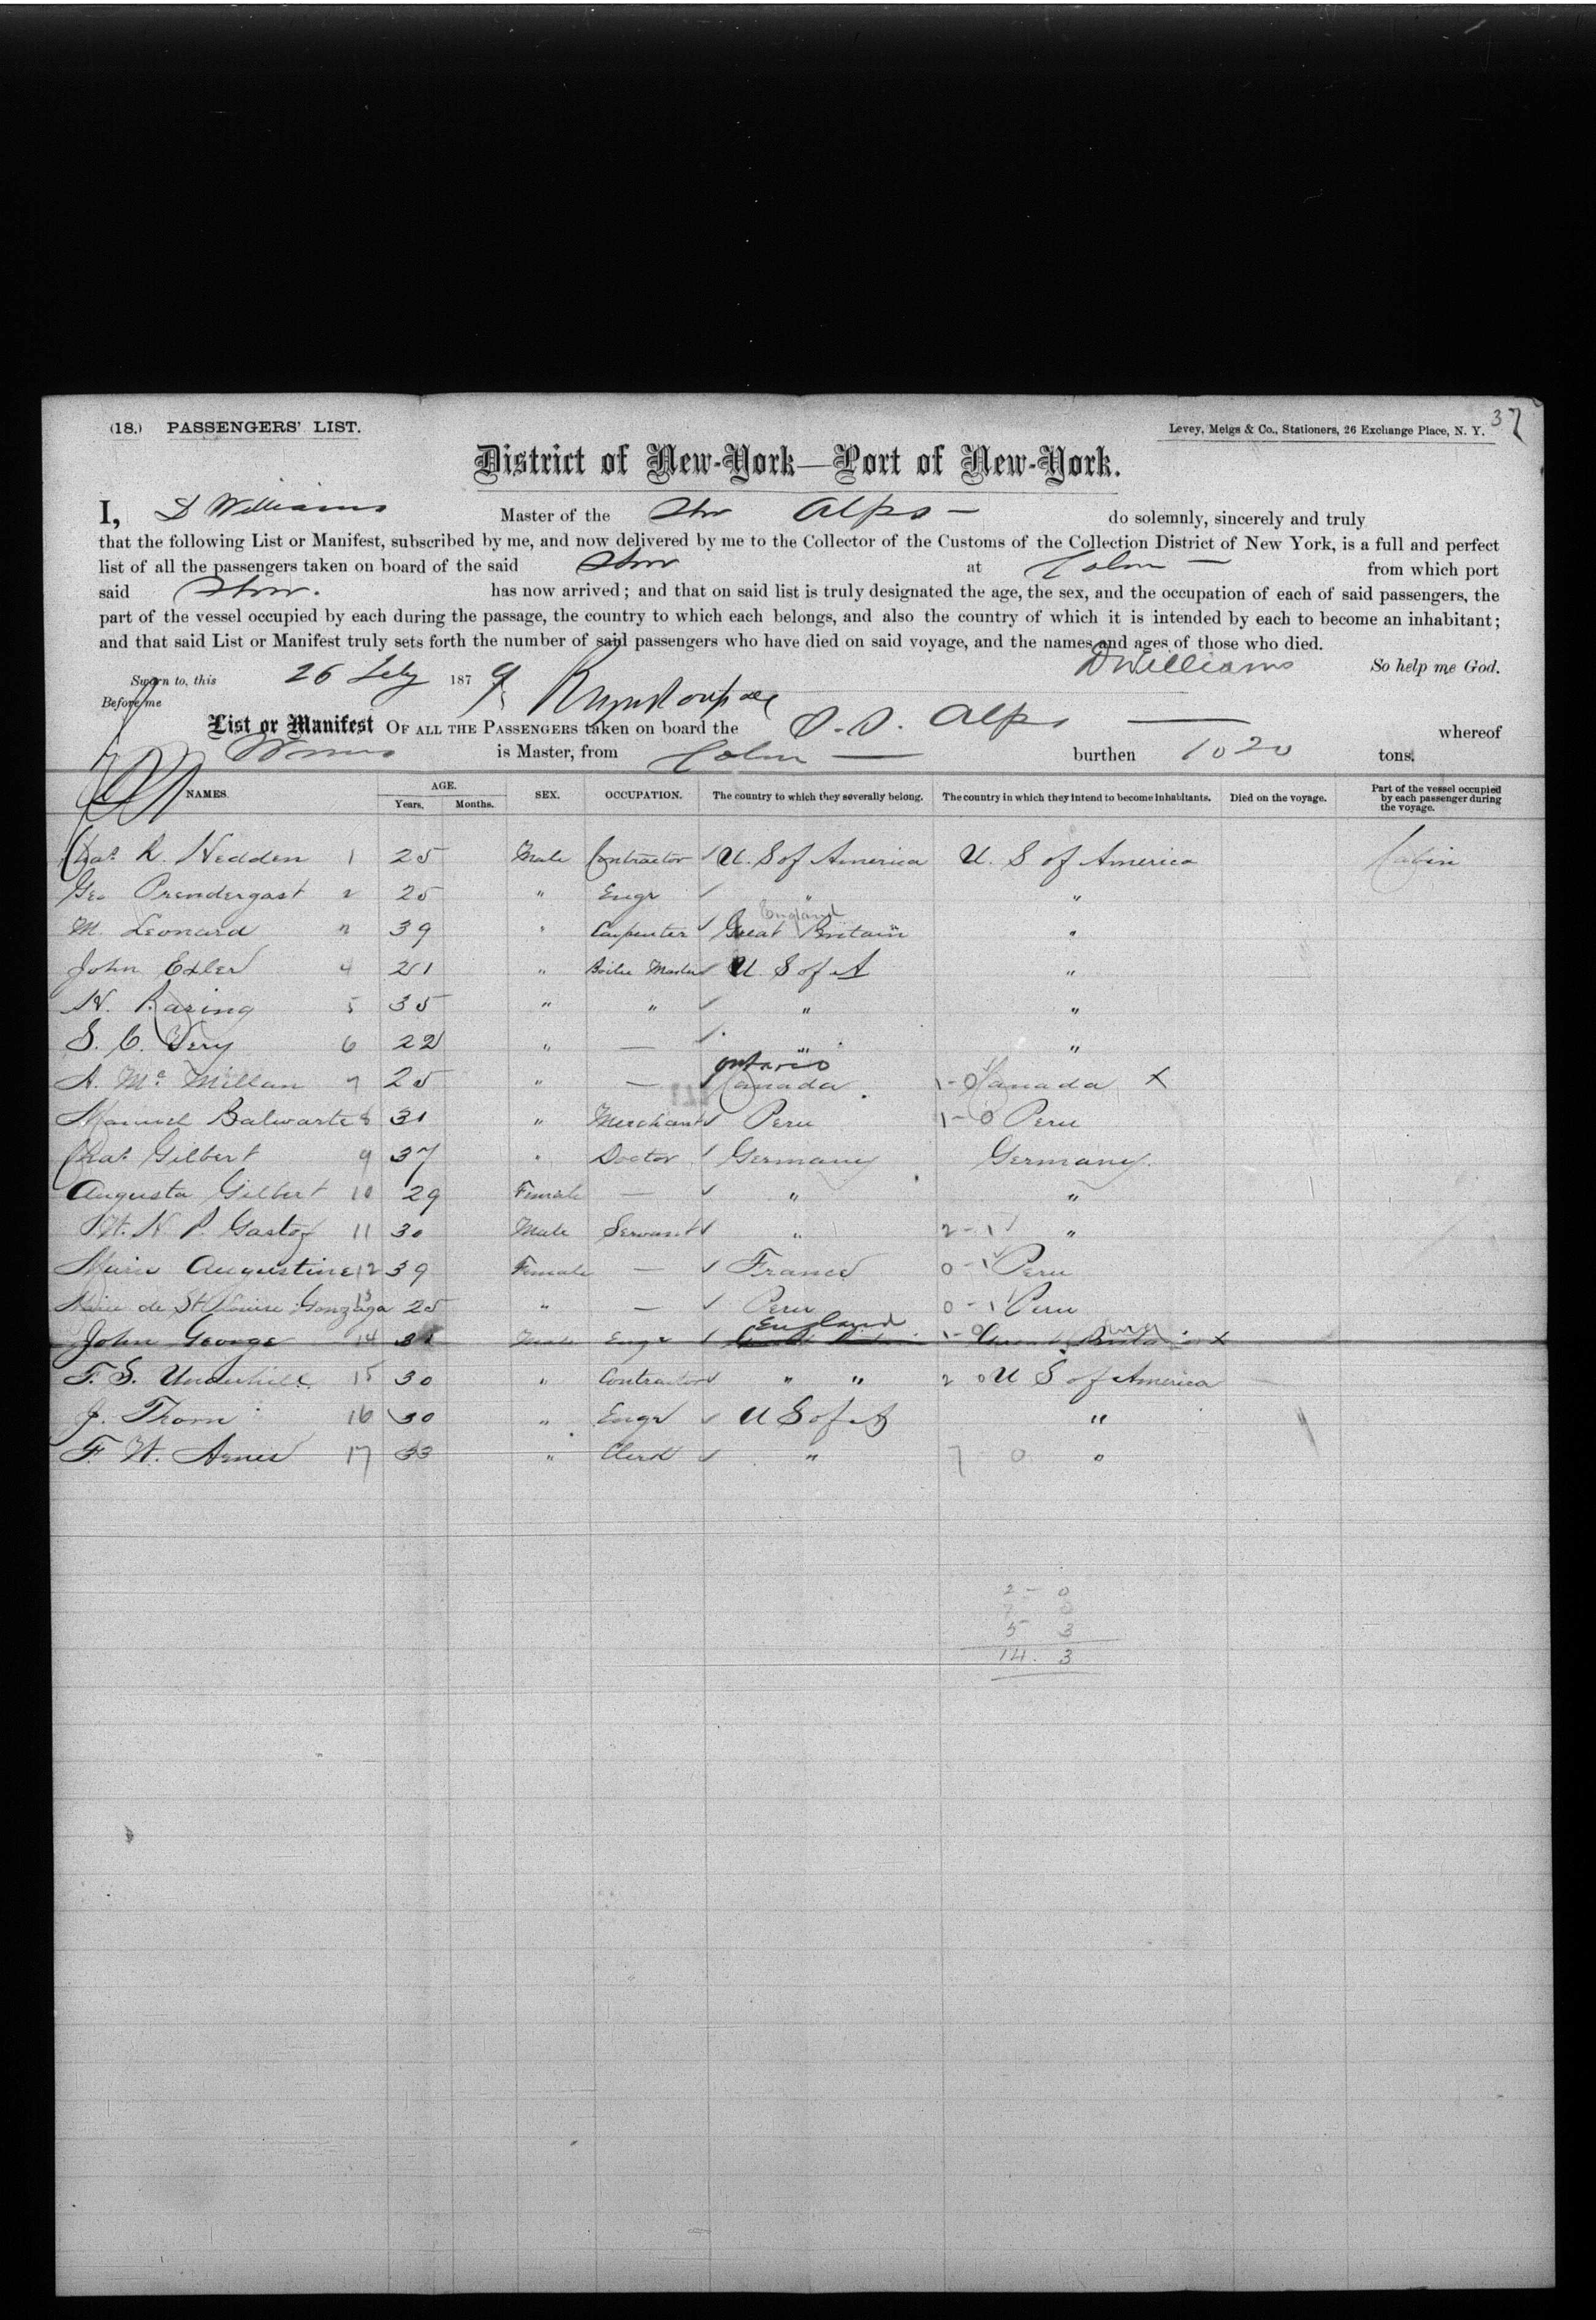 37
(18.) PASSENGERS' LIST. Levey, Meigs & Co., Stationers, 26 Exchange Place, N. Y.
District of New-York—Port of New-York.
I, D Williams Master of the Str Alps — do solemnly, sincerely and truly
that the following List or Manifest, subscribed by me, and now delivered by me to the Collector of the Customs of the Collection District of New York, is a full and perfect
list of all the passengers taken on board of the said Str at Colon — from which port
said Str. has now arrived; and that on said list is truly designated the age, the sex, and the occupation of each of said passengers, the
part of the vessel occupied by each during the passage, the country to which each belongs, and also the country of which it is intended by each to become an inhabitant;
and that said List or Manifest truly sets forth the number of said passengers who have died on said voyage, and the names and ages of those who died.
DWilliams So help me God.
Sworn to, this 26 July 1879
Before me
List or Manifest OF ALL THE PASSENGERS taken on board the S.S. Alps — whereof
is Master, from Colon — burthen 1020 tons.
NAMES. AGE. Years. Months. SEX. OCCUPATION. The country to which they severally belong. The country in which they intend to become inhabitants. Died on the voyage. Part of the vessel occupied by each passenger during the voyage.
Chas R. Hedden 1 25 Male Contractor U. S of America U. S of America Cabin
Geo Prendergast 2 25 " Engr " "
England
M. Leonard 3 39 " Carpenter Great Britain "
John Exler 4 21 " Boiler Maker U. S of A "
H. Baring 5 35 " " " "
S. C. Very 6 22 " — " "
Ontario
A. Mc Millan 7 25 " — Canada 1-0 Canada X
Manuel Balwarte 8 31 " Merchant Peru 1-0 Peru
Chas Gilbert 9 37 " Doctor Germany Germany
Augusta Gilbert 10 29 Female — " "
W. H P. Gastof 11 30 Male Servant " 2-1 "
Marie Augustine 12 39 Female — France 0-1 Peru
Marie de St Louise Gonzaga 13 25 " — Peru 0-1 Peru
England
John George 14 Male Engr 1-0 Great Britain X
F. S. Underhill 15 30 " Contractor " " 2 0 U S of America
J. Thorn 16 30 " Engr U S of A "
F. W. Ames 17 33 " Clerk " 7 0 "
2 - 0
7 0
5 3
14. 3